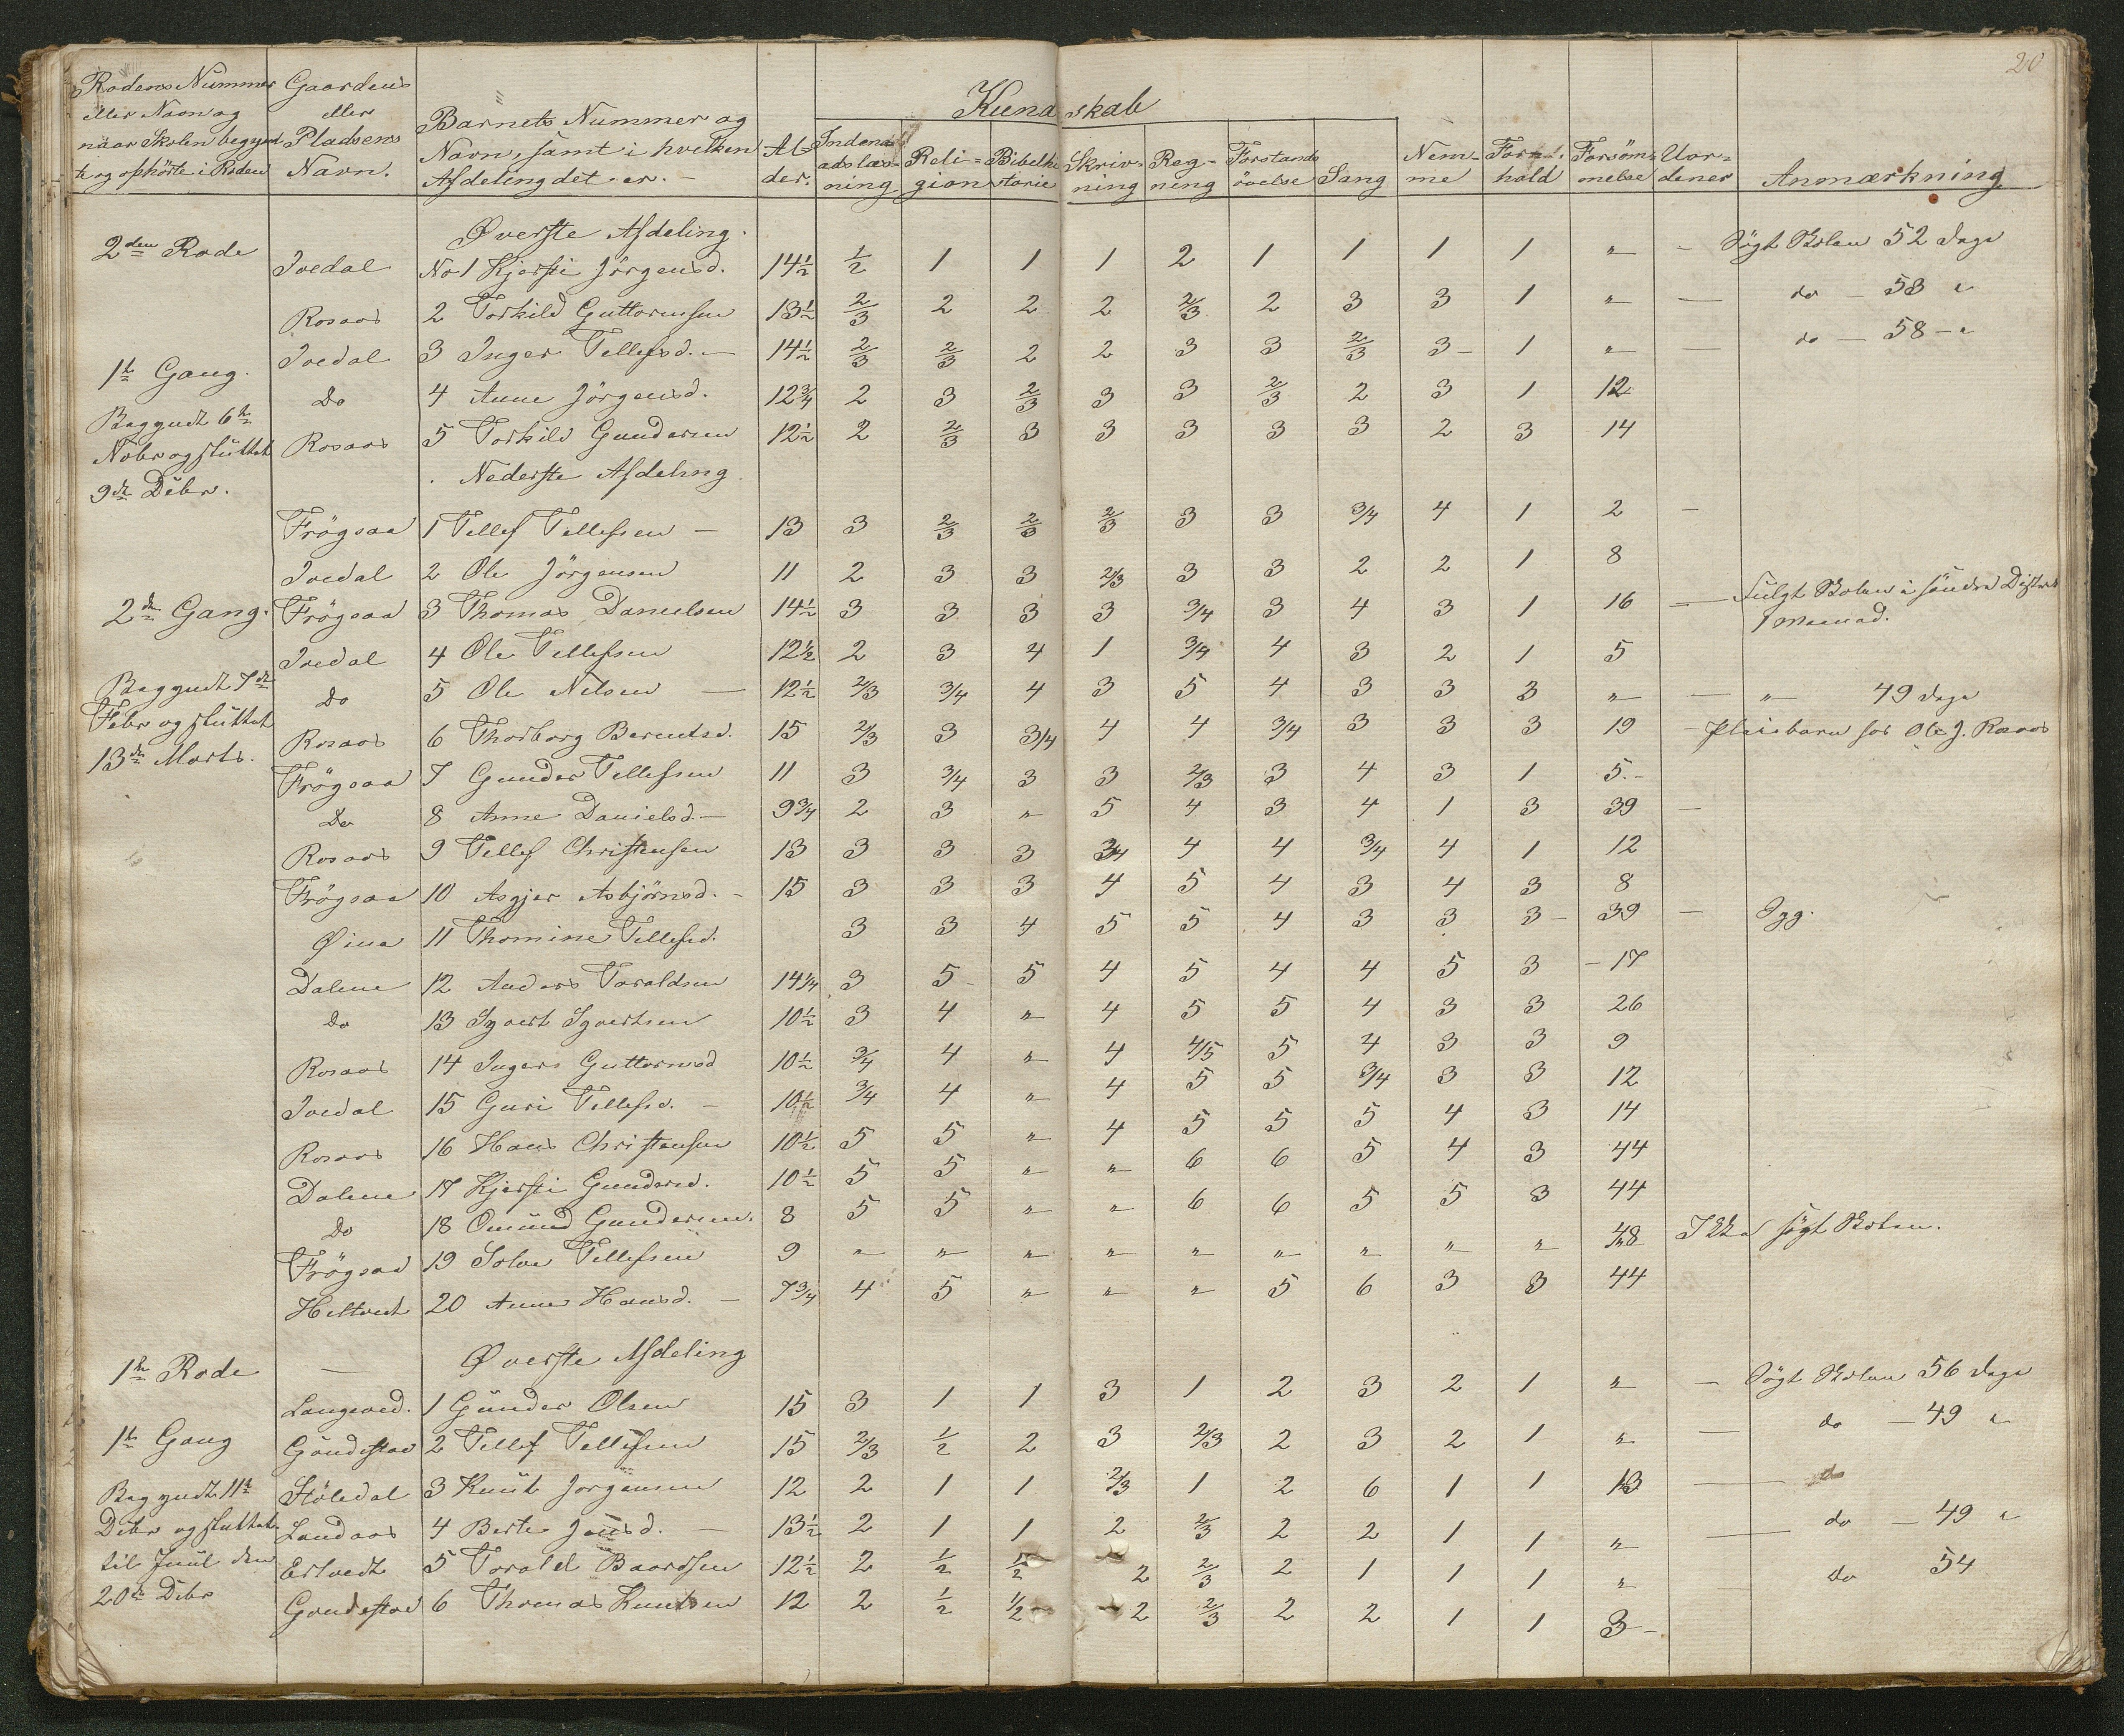 20
Rodens Nummer eller Navn og naar Skolen begyndte og ophörte i Roden | Gaardens eller Pladsens Navn. | Barnets Nummer og Navn, samt i hvilken Afdeling det er. — | Alder. | Kundskab | Nemme | Forhold | Forsömmelse | Uordener | Anmærkning
Indenadslæsning | Religion | Bibelhistorie | Skrivning | Regning | Forstandsövelse | Sang
2den Rode | Øverste Afdeling.
Ivedal | No 1 Kjersti Jörgensd. | 14½ | ½ | 1 | 1 | 1 | 2 | 1 | 1 | 1 | 1 | " | — | Sögt Skolen 52 dage
Rosaas | 2 Torkild Guttormsen | 13½ | 2/3 | 2 | 2 | 2 | 2/3 | 2 | 3 | 3 | 1 | " | — | do — 53 "
1te Gang. | Ivedal | 3 Inger Tellefsd. — | 14½ | 2/3 | 2/3 | 2 | 2 | 3 | 3 | 2/3 | 3 | 1 | " | — | do — 58 — "
Begyndt 6te | Do | 4 Anne Jörgensd. | 12¾ | 2 | 3 | 2/3 | 3 | 3 | 2/3 | 2 | 3 | 1 | 12
Nobr og sluttet | Rosaas | 5 Torkild Gundersen | 12½ | 2 | 2/3 | 3 | 3 | 3 | 3 | 3 | 2 | 3 | 14
9de Debr. | Nederste Afdeling
Frögsaa | 1 Tellef Tellefsen — | 13 | 3 | 2/3 | 2/3 | 2/3 | 3 | 3 | 3/4 | 4 | 1 | 2 | —
Ivedal | 2 Ole Jörgensen | 11 | 2 | 3 | 3 | 2/3 | 3 | 3 | 2 | 2 | 1 | 8
2den Gang. | Frögsaa | 3 Thomas Danielsen | 14½ | 3 | 3 | 3 | 3 | 3/4 | 3 | 4 | 3 | 1 | 16 | — | Fulgt Skolen i söndre District 1 Maaned.
Ivedal | 4 Ole Tellefsen | 12½ | 2 | 3 | 4 | 1 | 3/4 | 4 | 3 | 2 | 1 | 5
Begyndt 7de | Do | 5 Ole Nilsen — | 12½ | 2/3 | 3/4 | 4 | 3 | 5 | 4 | 3 | 3 | 3 | " | — | " 49 dage
Febr og sluttet | Rosaas | 6 Thorborg Berentsd. | 15 | 2/3 | 3 | 3/4 | 4 | 4 | 3/4 | 3 | 3 | 3 | 19 | — | Pleiebarn hos Ole J. Rosaas
13de Marts. | Frögsaa | 7 Gunder Tellefsen | 11 | 3 | 3/4 | 3 | 3 | 2/3 | 3 | 4 | 3 | 1 | 5. —
Do | 8 Anne Danielsd. — | 9¾ | 2 | 3 | " | 5 | 4 | 3 | 4 | 1 | 3 | 39 | —
Rosaas | 9 Tellef Christensen | 13 | 3 | 3 | 3 | 3/4 | 4 | 4 | 3/4 | 4 | 1 | 12
Frögsaa | 10 Asgjer Asbjörnsd. — | 15 | 3 | 3 | 3 | 4 | 5 | 4 | 3 | 4 | 3 | 8
Øina | 11 Thomine Tellefsd. | 3 | 3 | 4 | 5 | 5 | 4 | 3 | 3 | 3 | 39 | — | Syg.
Dalene | 12 Anders Toraldsen | 14¼ | 3 | 5 | 5 | 4 | 5 | 4 | 4 | 5 | 3 | 17
Do | 13 Syvert Syvertsen | 10½ | 3 | 4 | " | 4 | 5 | 5 | 4 | 3 | 3 | 26
Rosaas | 14 Inger Guttormsd | 10½ | 3/4 | 4 | " | 4 | 4/5 | 5 | 4 | 3 | 3 | 9
Ivedal | 15 Guri Tellefsd. — | 10½ | 3/4 | 4 | " | 4 | 5 | 5 | 3/4 | 3 | 3 | 12
Rosaas | 16 Hans Christensen | 10½ | 5 | 5 | " | 4 | 5 | 5 | 5 | 4 | 3 | 14
Dalene | 17 Kjersti Gundersd. | 10½ | 5 | 5 | " | " | 6 | 6 | 5 | 4 | 3 | 44
Do | 18 Omund Gundersen. | 8 | 5 | 5 | " | " | 6 | 6 | 5 | 5 | 3 | 44
Frögsaa | 19 Solve Tellefsen | 9 | " | " | " | " | " | " | " | " | " | 48 | Ikke sögt Skolen.
Heltvedt | 20 Anne Hansd. — | 7¾ | 4 | 5 | " | " | " | 5 | 6 | 3 | 3 | 44
1te Rode | — | Øverste Afdeling
Langeved. | 1 Gunder Olsen | 15 | 3 | 1 | 1 | 3 | 1 | 2 | 3 | 2 | 1 | " | — | Sögt Skolen 56 dage
1te Gang | Göndestad | 2 Tellef Tellefsen | 15 | 2/3 | ½ | 2 | 3 | 2/3 | 2 | 3 | 2 | 1 | " | — | do — 49 "
Begyndt 11te | Stöledal | 3 Knut Jorgensen | 12 | 2 | 1 | 1 | 2/3 | 1 | 2 | 6 | 1 | 1 | 13 | — | do
Debr og sluttet | Landaas | 4 Berte Jensd. — | 13½ | 2 | 1 | 1 | 2 | 2/3 | 2 | 2 | 1 | 1 | " | — | do — 49 "
til Juul den | Ertvedt | 5 Torald Baardsen | 12½ | 2 | ½ | ½ | 2 | 2/3 | 2 | 1 | 1 | 1 | " | do 54
20de Debr | Gondestad | 6 Thomas Knutsen | 12 | 2 | ½ | ½ | 2 | 2/3 | 2 | 2 | 1 | 1 | 3 —